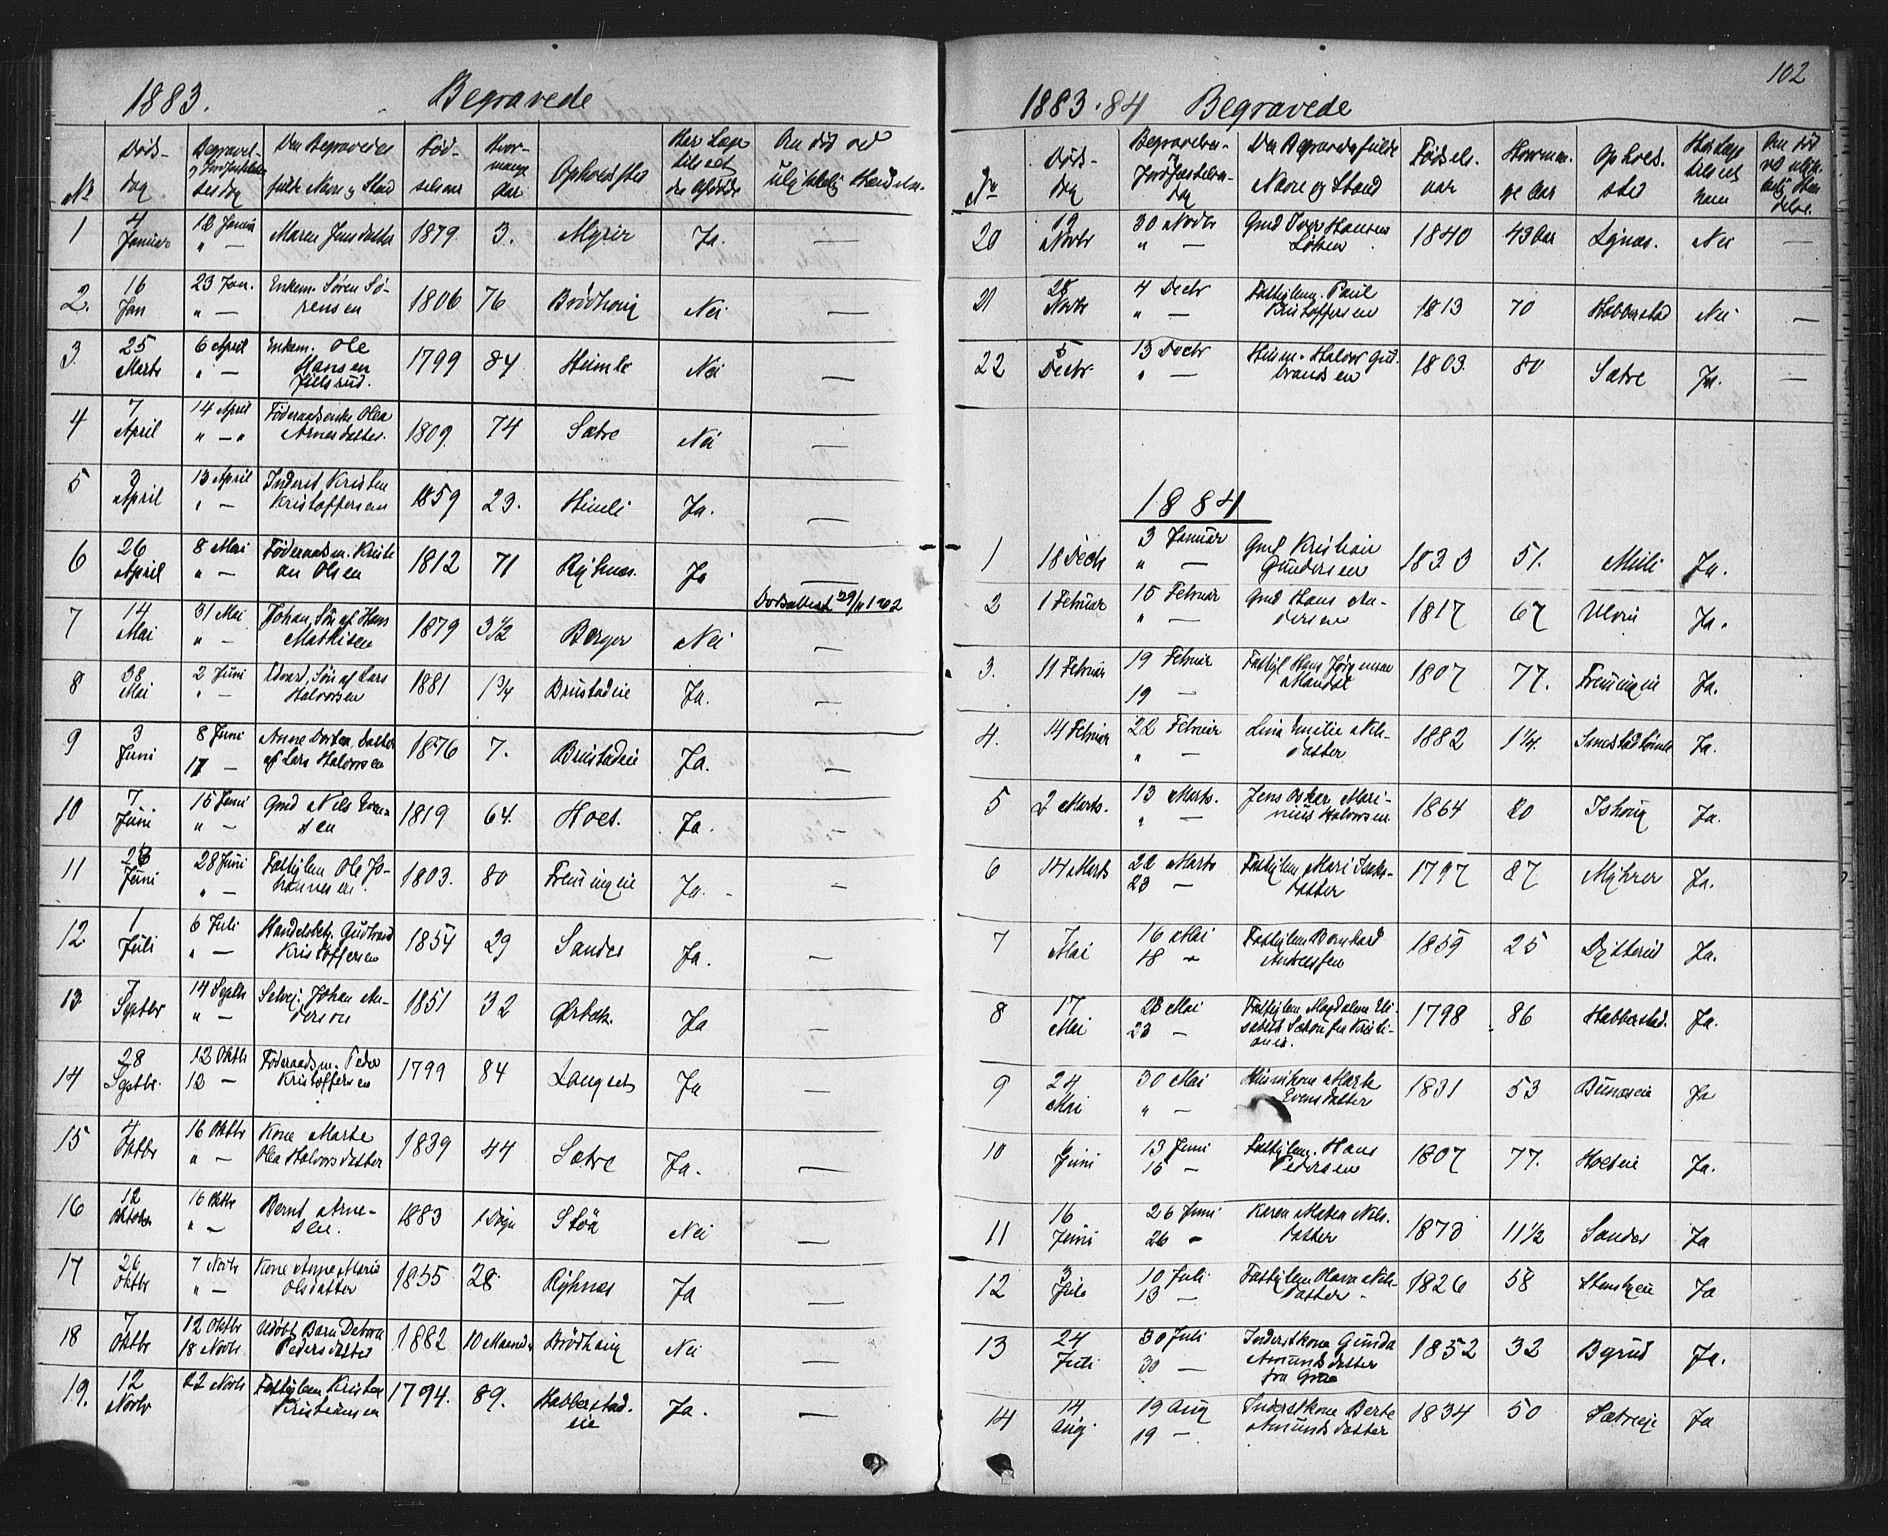 1883. Begravede
No Døds-dag Begravel- og Jordfæstelsesdag Den Begravedes fulde Navn og Stand Fød-selsaar Hvor-mange Aar Opholdssted Har Læge tilseet den Afdøde Om død ved ulykkelig Hændelse
1 4 Januar 12 Januar " — Maren Jensdatter 1879 3. Myrer Ja. —
2. 16 Jan 23 Jan. " — Enkem. Søren Sørensen 1806 76 Brødhoug Nei —
3. 25 Marts 6 April " — Enkem. Ole Hansen Julsrud. 1799 84 Heimle Nei —
4 7 April 14 April " — " Føderaadsenke Olea Arnesdatter. 1809. 74 Sætre Nei —
5 3 April 13 April " — Inderst Kristen Kristoffersen 1859 23. Himli Ja. —
6 26 April 8 Mai " — Føderaadsm. Kristian Olsen 1812 71 Ryhnes. Ja —
Dødsattest 29/11 1902
7 14 Mai 31 Mai " — Johan, Søn af Hans Mathisen 1879 3 1/2 Berger Nei —
8 38 Mai 2 Juni " — Edvard, Søn af Lars Halvorsen 1881 1 3/4 Brustadeie Ja. —
9 3 Juni 8 Juni 17 — Anne Dortea, Datter af Lars Halvorsen 1876 7. Brustadeie Ja. —
10 7 Juni 15 Juni " — Gmd Nils Evensen 1819 64. Hoel. Ja. —
11 Juni 28 Juni " — Fattiglem Ole Johannesen. 1803. 80 Freningeie Ja. —
12 1 Juli 6 Juli " — Handelsbetj. Gudbrand Kristoffersen 1854 29 Sander Ja. —
13. 7 Septbr 14 Septb " — Selvej. Johan Andersen 1851 32 Ørbæk. Ja —
14 28 Septbr. 12 Oktb 12 — Føderaadsm. Peder Kristoffersen 1799 84 Langset Ja —
15 4 Oktbr 16 Oktbr " — Kone Marte Olea Halvorsdatter 1839 44 Sætre Ja. —
16 12 Oktober 16 Oktbr " — Bernt Arnesen. 1883 1 Døgn Støa Nei —
17 26 Oktbr 7 Novbr " — Kone Anne Marie Olsdatter 1855 28. Ryhnes Ja —
18 7 Oktbr 12 Oktbr 18 Novb. Udøbt Barn Debora Pedersdatter 1882 10 Maaneder Brødhoug Nei —
19. 12 Novbr 22 Novb Fattiglem Kristen Kristiansen 1794. 89. Habberstad-eie Ja. —
102
1883-84 Begravede
No Døds-dag Begravelses- og Jordfæstelses-dag Den Begravedes fulde Navn og Stand Fødsels-aar Hvorman-ge Aar Opholds-sted Har Læge tilseet ham Om død ved ulyk-kelig Hændelse.
20 19 Novbr 30 Novbr " — Gmd Iver Hansen 1840 43 Aar Lynes. Nei —
21 28 Novbr 4 Decbr " — Fattiglem. Paul Kristoffersen 1813 70 Habberstad Nei —
22 5 Decbr 13 Decbr " — Husm. Halvor Gudbrandsen 1803. 80 Sætre Ja. —
1884
1 18 Decb 3 Januar " — Gmd Kristian Gundersen 1833 51. Meli Ja.
2 1 Februar 15 Februar " — Gmd Hans Andersen 1817 67 Ulvin Ja.
3. 11 Februar 19 Februar 19 — Fattigl Hans Jørgensen Mandal 1807 77. Freningeie Ja.
4. 14 Februar 22 Februar " — Lina Emilie Nilsdatter 1882 1 1/4. Ja.
5 2 Marts. 13 Marts. " — Jens Oskar Marinius Halvorsen 1864 20 Ishoug Ja.
6 14 Marts 22 Marts 23 — Fattiglem Mari Isaksdatter 1797 87 Myhrer Ja.
7 7 Mai 16 Mai 18 " Fattiglem Bernhard Andersen 1859 25 Dytterud Ja.
8 17 Mai 23 Mai 23 — Fattiglem Magdalena Elisabeth fra Kristiania. 1798 86 Habberstad. Ja.
9 24 Mai 30 Mai " — Huuskone Marte Evensdatter 1831 53 Bunæseie Ja
10 6 Juni 13 Juni 15 — Fattiglem. Hans Pedersen 1807 77. Hoeleie Ja.
11 16 Juni 26 Juni 26 " Karen Mathea Nilsdatter 1873 11 1/2 Sander Ja
12 3 Juli 10 Juli 13 — Fattiglem Olava Nilsdatter 1826 58 Ja
13 24 Juli 30 Juli 30 — Inderstkone Gunda Amundsdatter fra Grue 1852 32 Byrud Ja.
14 14 Aug 19 Aug 19 — Inderstkone Berte Amundsdatter 1834 50 Sætreeie Ja